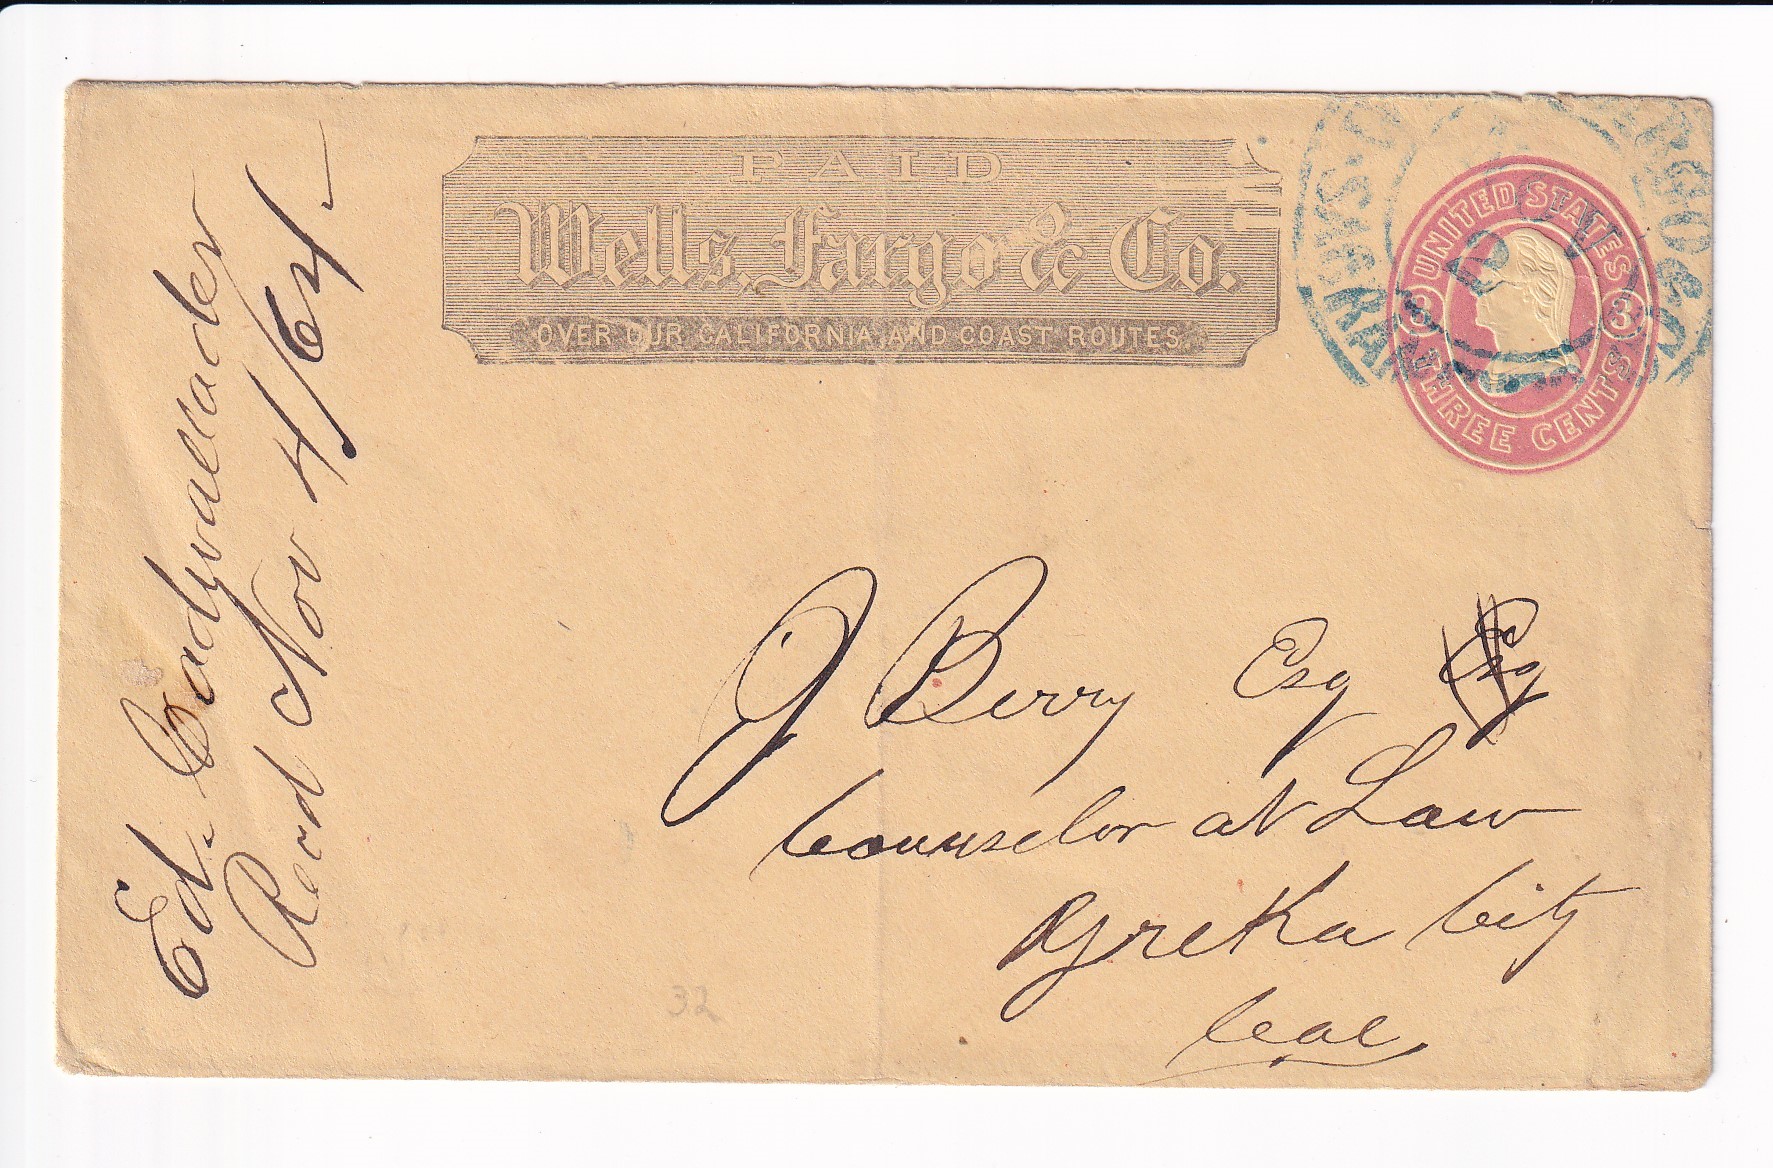 PAID
Wells, Fargo & Co.
OVER OUR CALIFORNIA AND COAST ROUTES.
UNITED STATES
3 3
THREE CENTS
2
J Berry Esq Esq
Counselor at Law
Yreka City
Cal
Ed. Cadwallader
Recd Nov 4/64
32